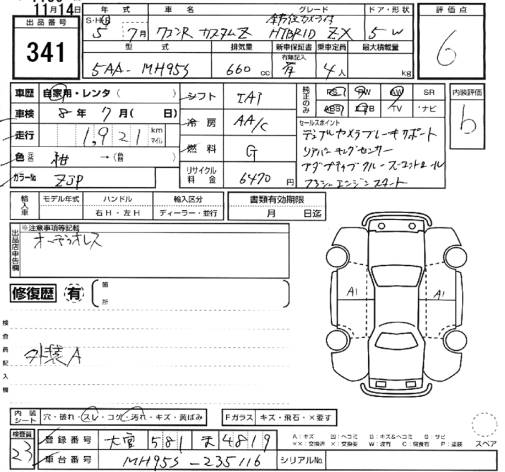 11月14日
出品番号
341
年式 車名 グレード ドア・形状
全方位カメラ付
S・H・R 5年 7月 ワゴンR カスタムZ HYBRID ZX 5W
型式 排気量 新車保証書 乗車定員 最大積載量
有無記入
5AA-MH95S 660cc 有 4人 kg
評価点
6
内装評価
b
車歴 自家用・レンタ( )
車検 8年 7月( 日)
走行 1,921 km マイル
色 紺 →( )
カラー№ ZJP
シフト IAT
冷房 AA/C
燃料 G
リサイクル料金 6470円
純正のみ
PS PW AW SR
ABS エアB TV ナビ
セールスポイント
デュアルカメラブレーキサポート
リヤパーキングセンサー
アダプティブクルーズコントロール
プッシュエンジンスタート
輸入車
モデル年式 ハンドル 輸入区分 書類有効期限
右H・左H ディーラー・並行 月 日迄
出品店申告欄
※注意事項等記載
オーディオレス
修復歴 有
箇所
検査員記入欄
外装A
A1 A1
内装シート 穴・破れ・スレ・コゲ・汚れ・キズ・黄ばみ
Fガラス キズ・飛石・×要す
検査員
23
登録番号 大宮 581 4819
車台番号 MH95S-235116
シリアル№
A:キズ U:ヘコミ B:キズ&ヘコミ S:サビ
スペア